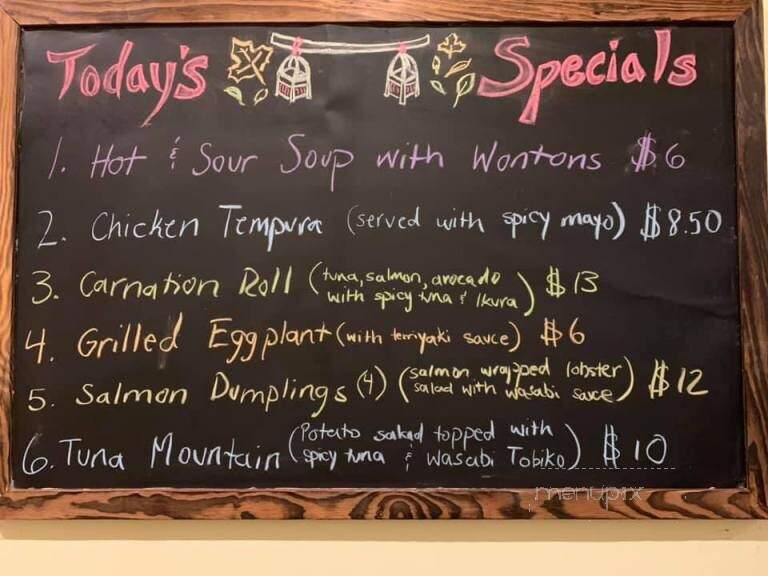 Today's Specials
1. Hot & Sour Soup with Wontons $6
2. Chicken Tempura (served with spicy mayo) $8.50
3. Carnation Roll (tuna, salmon, avocado
with spicy tuna & Ikura) $13
4. Grilled Eggplant (with terriyaki sauce) $6
5. Salmon Dumplings (4) (salmon wrapped lobster
salad with wasabi sauce) $12
6. Tuna Mountain (Potato salad topped with
spicy tuna & Wasabi Tobiko) $10
menupix